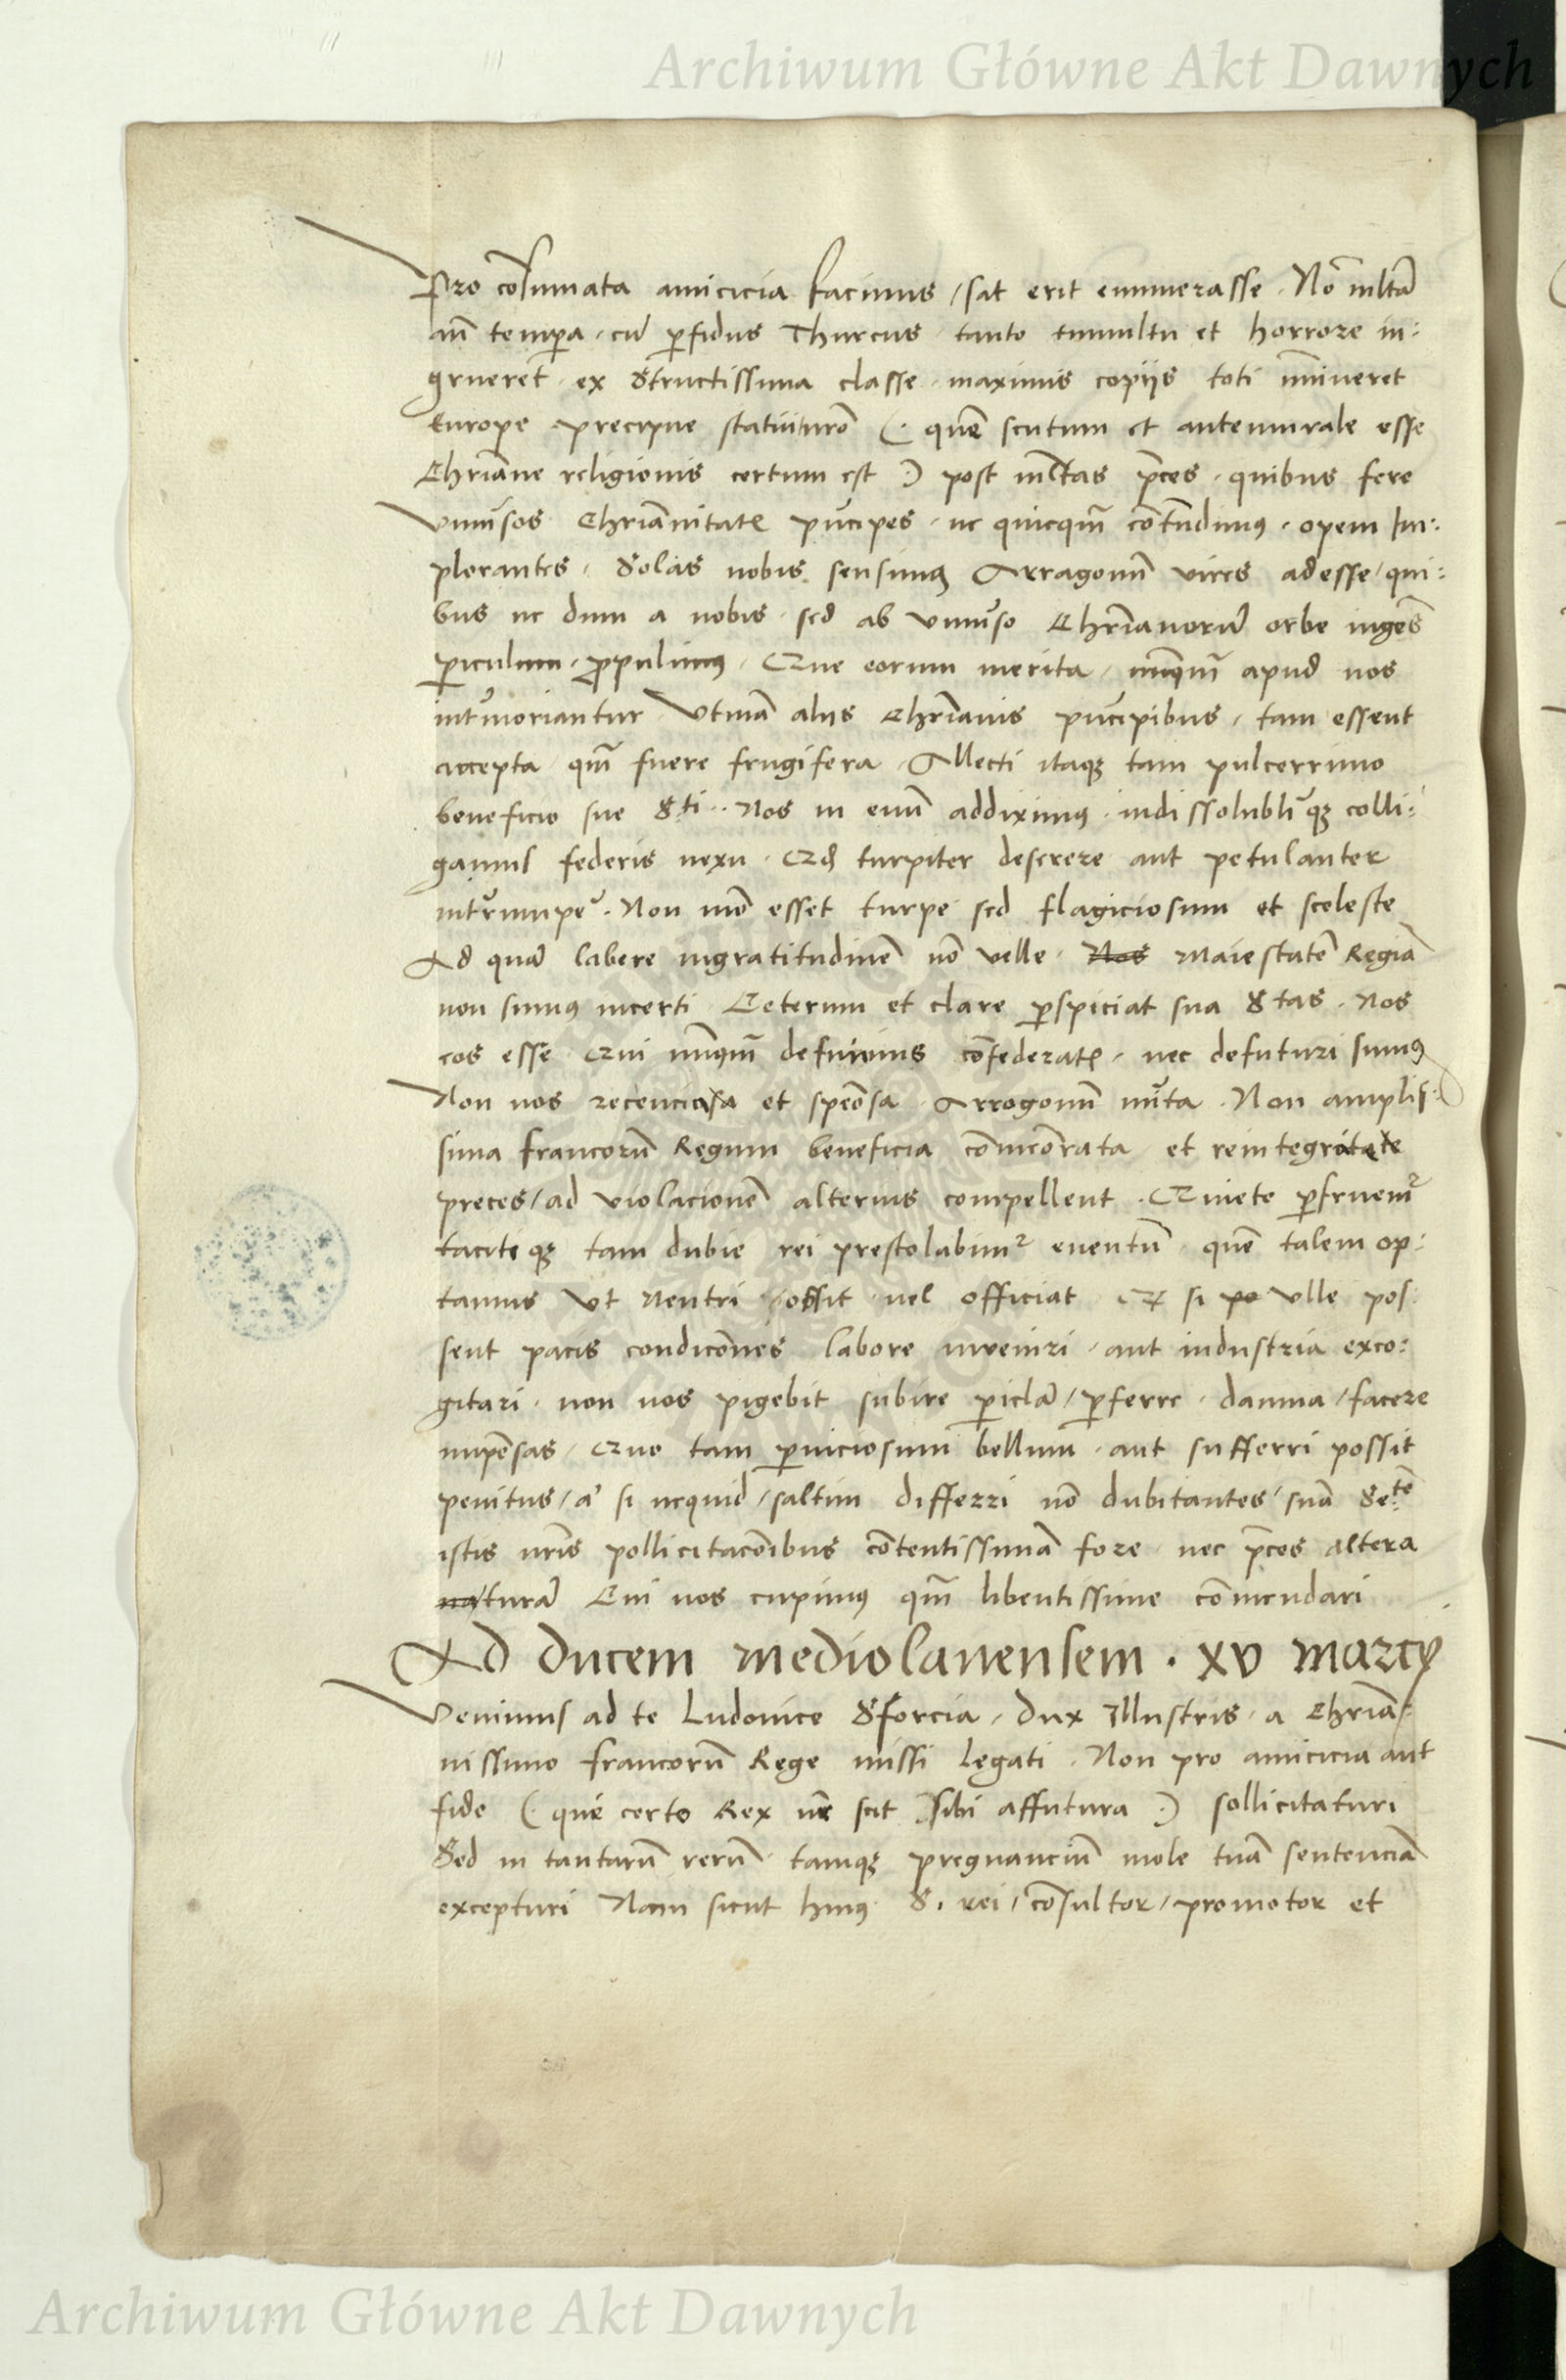 Archiwum Główne Akt Dawnych
Pro cōsumata amicicia facimus / sat erit enumerasse . Nō multa
an̄ tempora . cū ꝑfidus Thurcus . tanto tumultu et horrore in:
grueret . ex Structissima classe . maximis copijs toti īmineret
Europe . precipue (: quem scutum et antemurale esse
Chriāne religionis certum est :) post mltas p̄ces . quibus fere
Vniuersos Chriānitatꝭ pͥncipes . nc quicqm̄ cōtendimus . opem Im:
plorantes . Solas nobis sensimus Arragonum vires adesse / qui:
bus ne dum a nobis . sed ab Vniuerso Chriānorū orbe ingēs
ꝑiculum . ꝓpulimus . Que eorum merita . nunqm̄ apud nos
intermoriantur . Vtinā alijs Chriānis pͥncipibus . tam essent
accepta qm̄ fuere frugifera . Allecti itaqꝫ tam pulcerrimo
beneficio sue S.ti . Nos in euum addiximus . indissolubiliqꝫ colli:
gamus federis nexu . Qd turpiter deserere aut petulanter
interrumpere . Non mō esset turpe sed flagiciosum et sceleste
Ad quā labere ingratitudinē nō velle . Nos Maiestatē Regiā
non sumus incerti . Ceterum et clare ꝑspiciat sua Stas . Nos
eos esse Qui nunqm̄ defuimus cōfederatꝭ . nec defuturi sumus
Non nos recencia et speciosa Arrogonum mūta . Non amplis:
sima francorū Regum beneficia cōmemorata et reintegrate
preces / ad violacionē alterius compellent . Quiete ꝑfruemur
taciteqꝫ tam dubie rei prestolabimur euentū . quē talem op:
tamus Vt Neutri obsit vel officiat Et si po vlle pos:
sent pacis condicōnes labore inveniri . aut industria exco:
gitari . non nos pigebit subire ꝑicla / ꝑferre . damna / facere
impēsas / Quo tam ꝑniciosum bellum . aut sufferri possit
penitus / at si nequid / saltim differri nō dubitantes / suā Se.tē
istis nrīs pollicitacōibus cōtentissimā fore . nec p̄ces altera
naturā Cui nos cupimus qm̄ libentissime cōmendari
Ad Ducem Mediolanensem . xv Marcij
Venimus ad te Ludouice Sforcia / Dux Illustris . a Chriā:
nissimo francorū Rege missi Legati . Non pro amicicia aut
fide (: que certe Rex nr scit sibi affutura :) sollicitaturi
Sed in tantarū rerū . tamqꝫ pregnanciū mole tuā sentenciā
excepturi Nam sicut huius S. rei / cōsultor / promotor et
Archiwum Główne Akt Dawnych